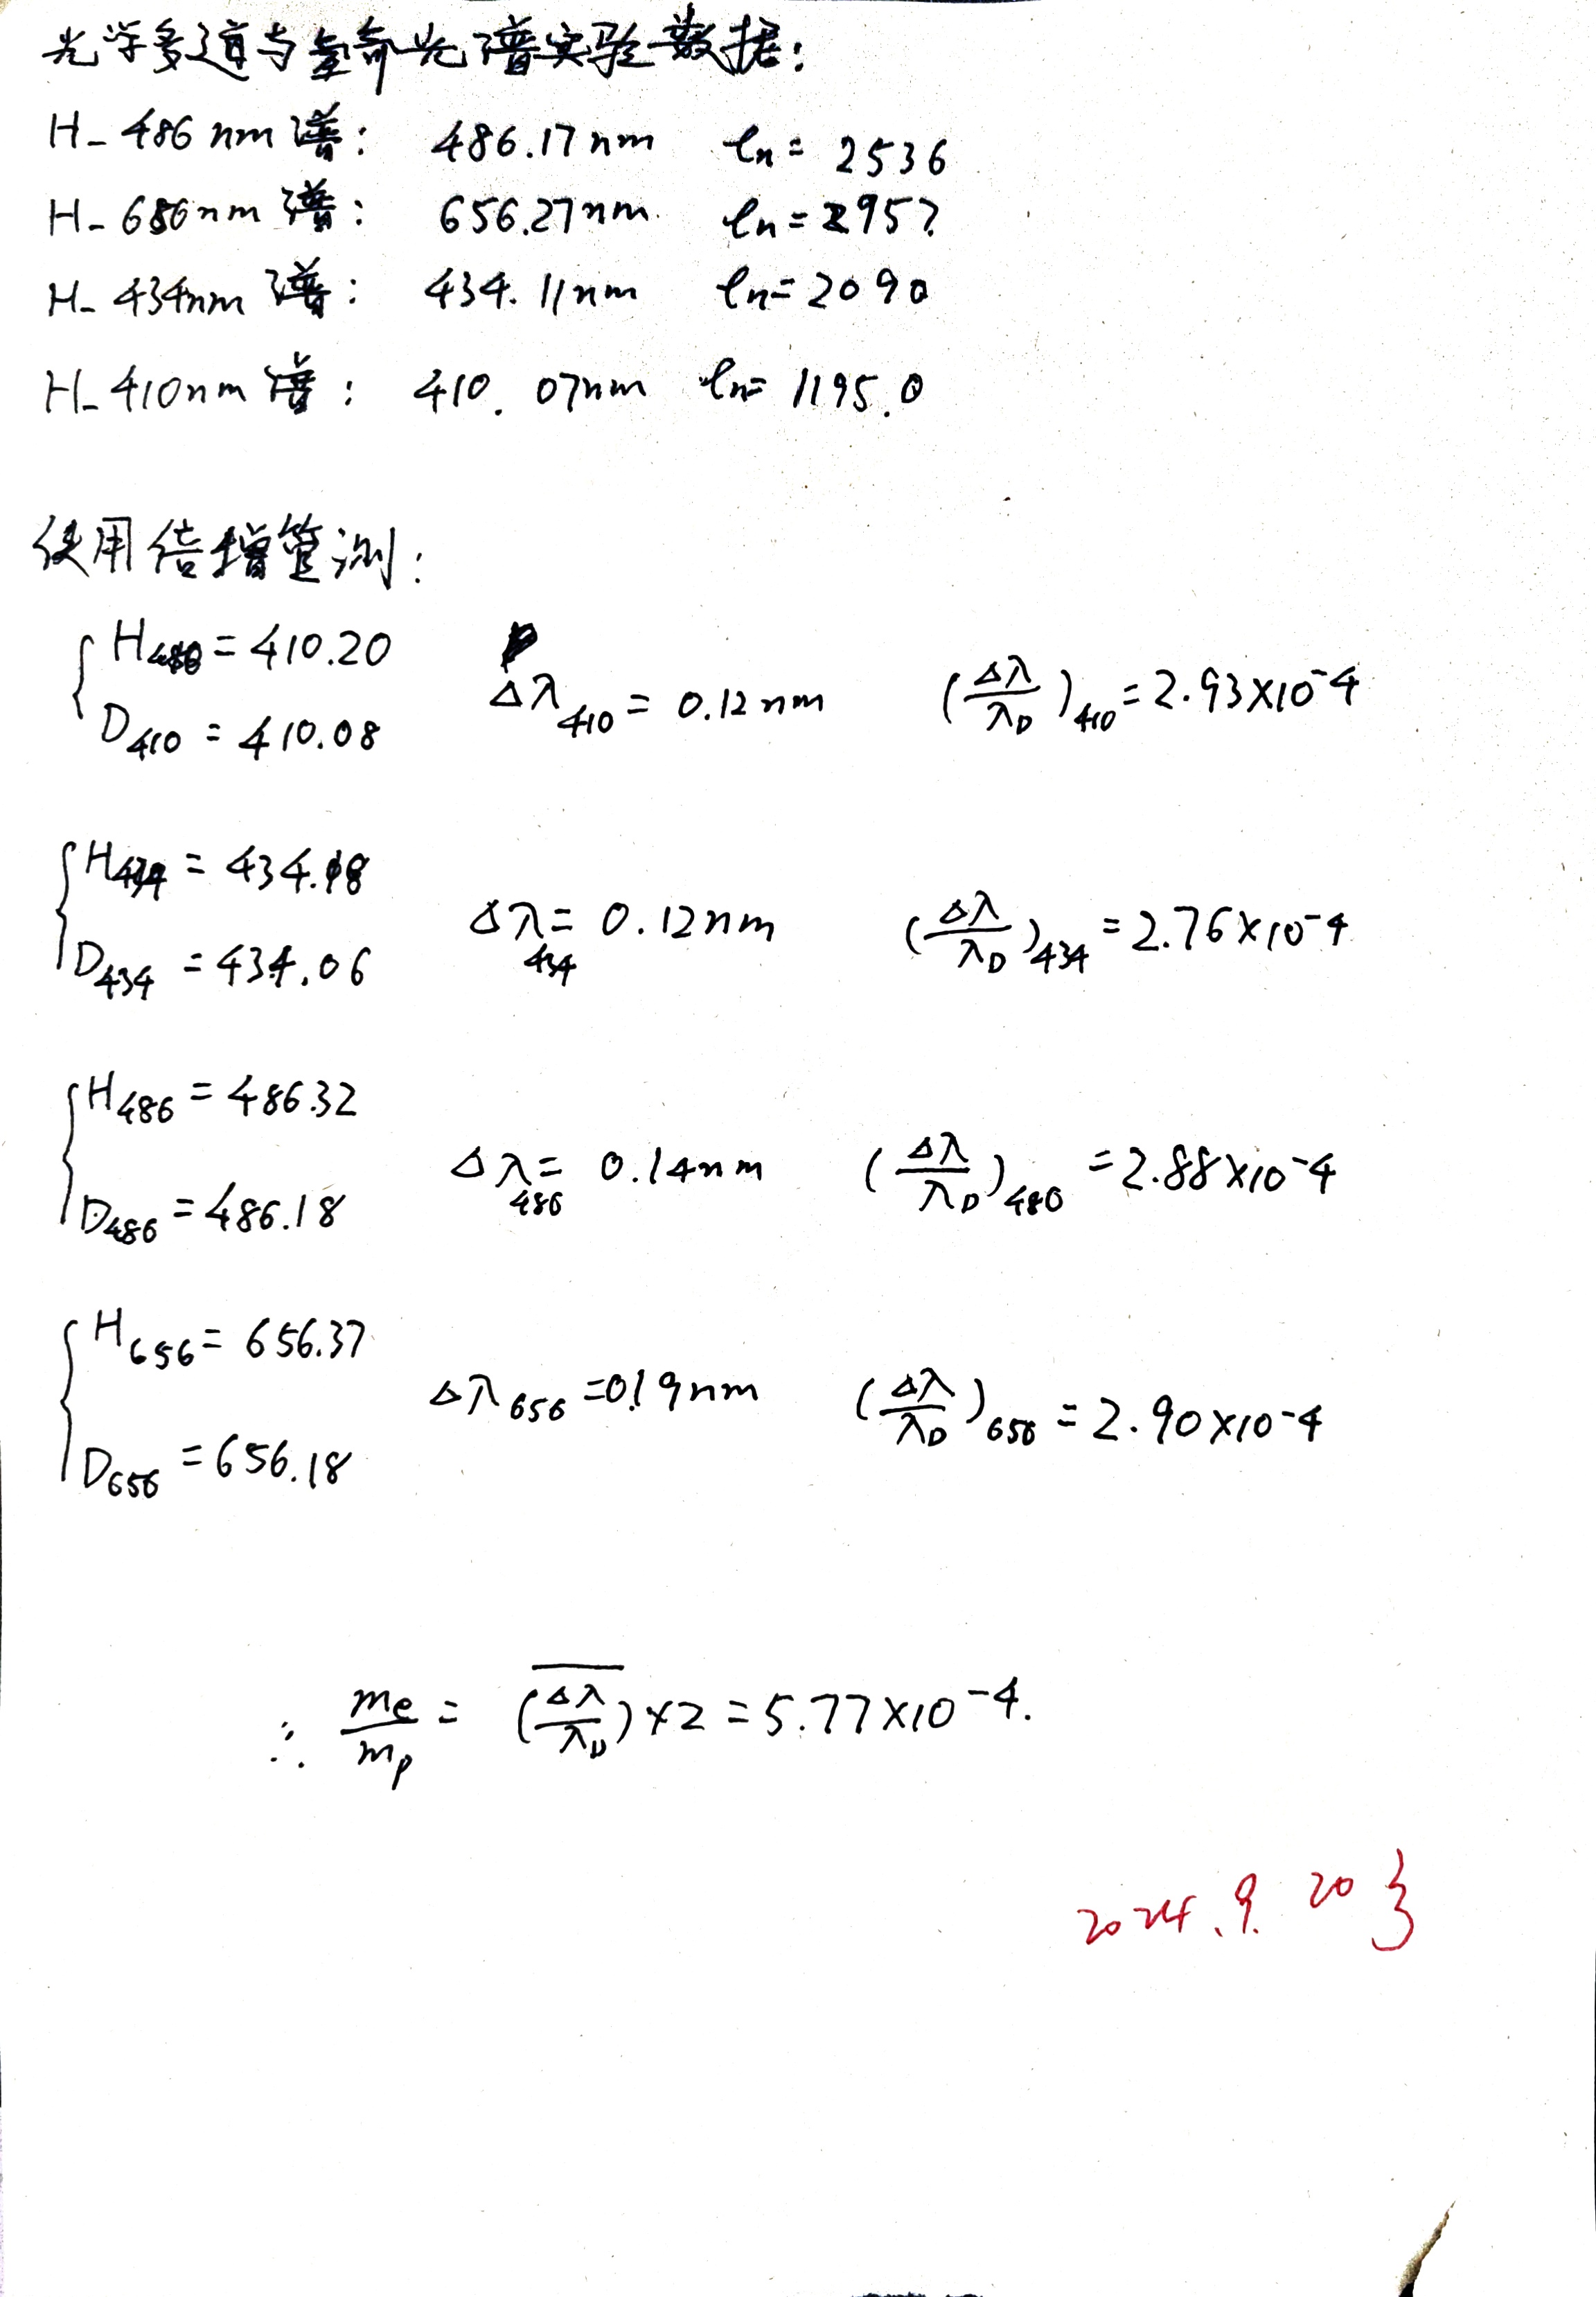 光学多道与氢氘光谱实验数据:
H- 486 nm 谱: 486.17nm ln= 2536
H- 656nm 谱: 656.27nm. ln=2957.
H- 434nm 谱: 434.11nm ln=2090
H- 410nm 谱: 410.07nm ln= 1195.0
使用倍增管测:
H = 410.20
D410 = 410.08 Δλ410 = 0.12nm (Δλ/λD)410 = 2.93×10^-4
H434 = 434.18
D434 = 434.06 Δλ434 = 0.12nm (Δλ/λD)434 = 2.76×10^-4
H486 = 486.32
D486 = 486.18 Δλ486 = 0.14nm (Δλ/λD)486 = 2.88×10^-4
H656 = 656.37
D656 = 656.18 Δλ656 = 0.19nm (Δλ/λD)656 = 2.90×10^-4
∴ me/mp = (Δλ/λD)×2 = 5.77×10^-4.
2024.9.20